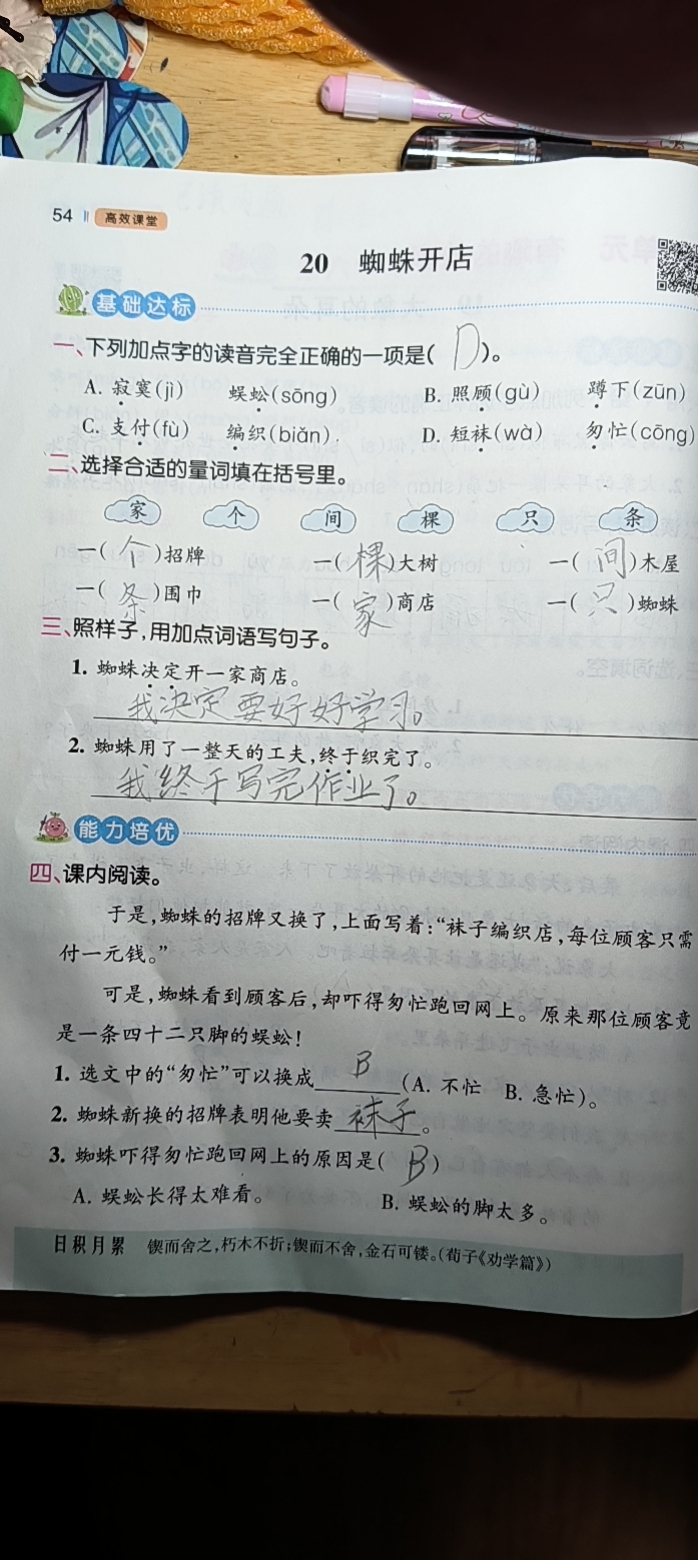 54 高效课堂
20 蜘蛛开店
基础达标
一、下列加点字的读音完全正确的一项是( D )。
A. 寂寞(jì) 蜈蚣(sōng) B. 照顾(gù) 蹲下(zūn)
C. 支付(fù) 编织(biǎn) D. 短袜(wà) 匆忙(cōng)
二、选择合适的量词填在括号里。
家 个 间 棵 只 条
一( 个 )招牌 一( 棵 )大树 一( 间 )木屋
一( 条 )围巾 一( 家 )商店 一( 只 )蜘蛛
三、照样子,用加点词语写句子。
1. 蜘蛛决定开一家商店。
我决定要好好学习。
2. 蜘蛛用了一整天的工夫,终于织完了。
我终于写完作业了。
能力培优
四、课内阅读。
于是,蜘蛛的招牌又换了,上面写着:“袜子编织店,每位顾客只需
付一元钱。”
可是,蜘蛛看到顾客后,却吓得匆忙跑回网上。原来那位顾客竟
是一条四十二只脚的蜈蚣!
1. 选文中的“匆忙”可以换成 B (A. 不忙 B. 急忙)。
2. 蜘蛛新换的招牌表明他要卖 袜子 。
3. 蜘蛛吓得匆忙跑回网上的原因是( B )
A. 蜈蚣长得太难看。 B. 蜈蚣的脚太多。
日积月累 锲而舍之,朽木不折;锲而不舍,金石可镂。(荀子《劝学篇》)